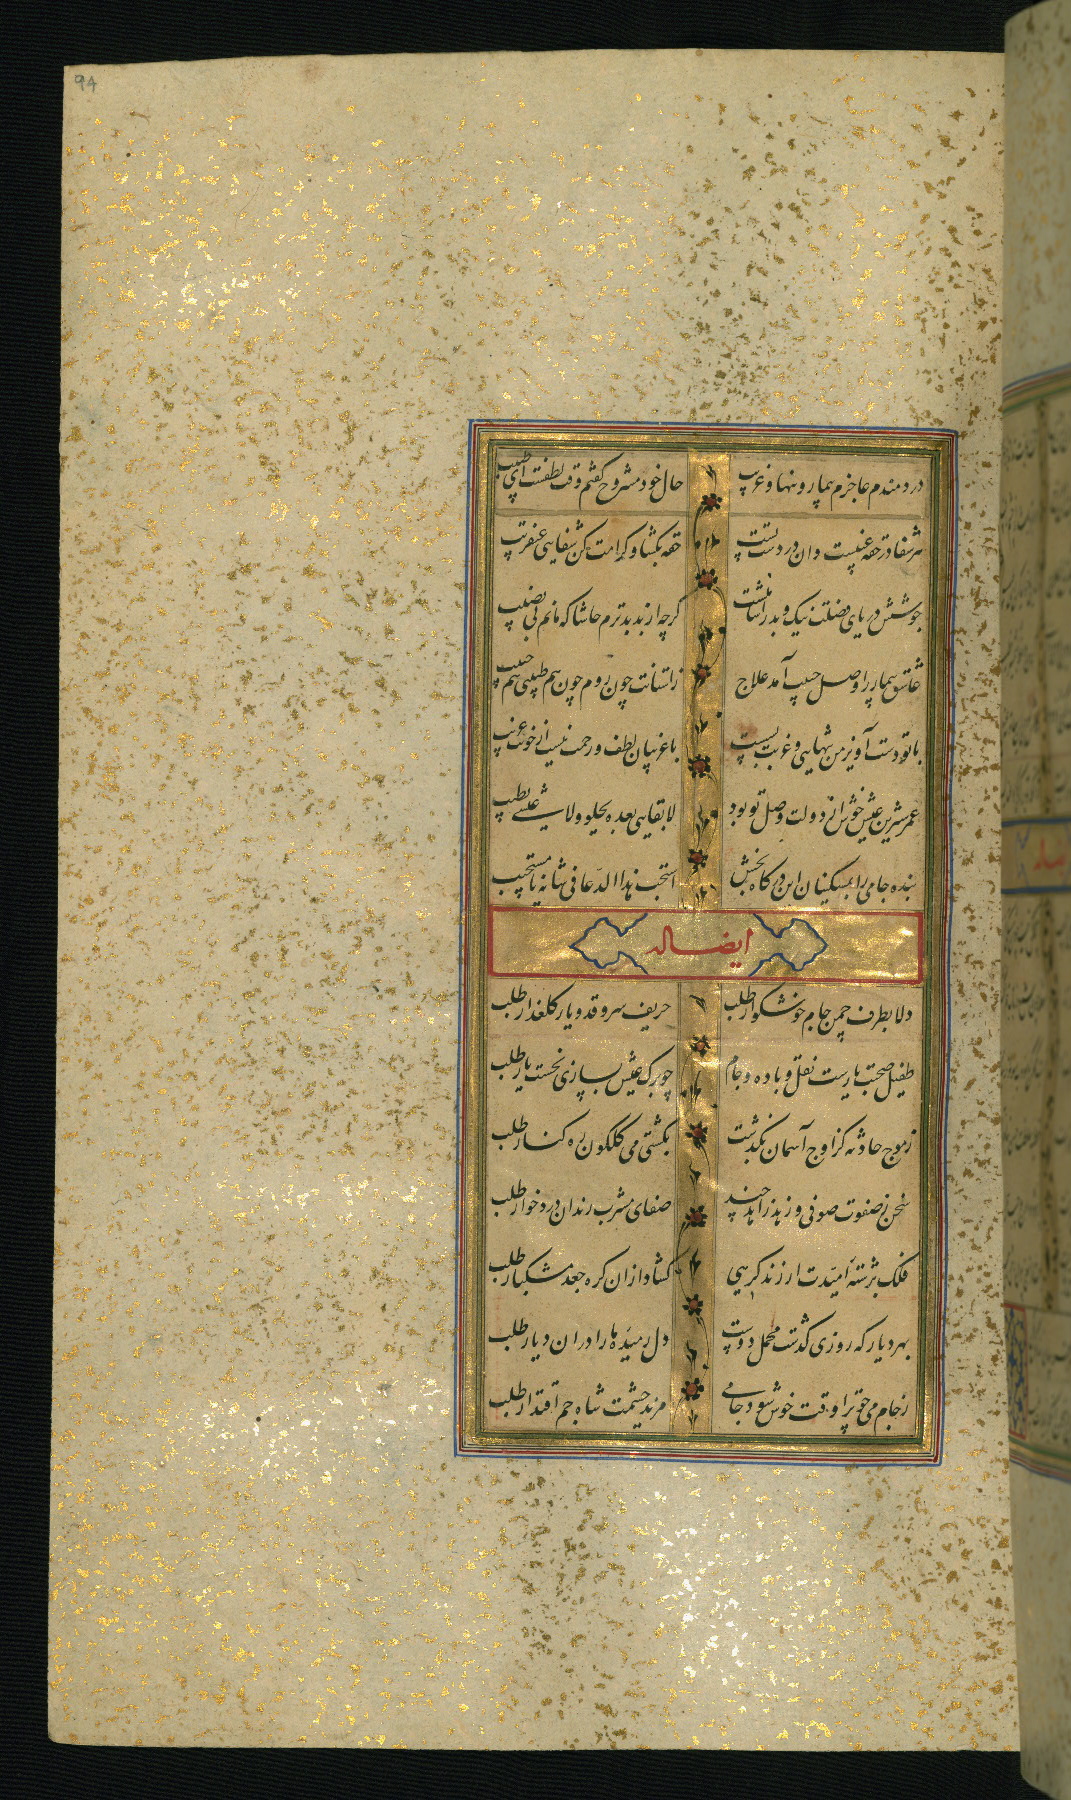 94
دردمندم عاجزم بیمار و تنها و غریب
حال خود مشروح گفتم وقت لطفست ای طبیب
هر شفا در حقه غیبست وان در دست تست
حقه بگشا و کرامت کن شفایی عنقریب
جوشش دریای فضلت نیک و بد را شاملست
گرچه از بد بدترم حاشا که مانم بی نصیب
عاشق بیمار را وصل حبیب آمد علاج
زاستانت چون روم چون هم طبیبی هم حبیب
با تو دست آویز من تنهایی و غربت بسست
با غریبان لطف و رحمت نیست از خوبت غریب
عمر شیرین عیش خوش از دولت وصل تو بود
لا بقایی بعده یحلو ولا عیشی یطیب
بنده جامی را بمسکینان این درگاه بخش
استجب هذا الدعا فی شانه یا مستجیب
ایضا له
دلا بطرف چمن جام خوشگوار طلب
حریف سرو قد و یار گلعذار طلب
طفیل صحبت یارست نقل و باده و جام
چو برگ عیش بسازی نخست یار طلب
زموج حادثه کز اوج آسمان بگذشت
بکشتی می گلگون ره کنار طلب
سخن ز صفوت صوفی و زهد زاهد چند
صفای مشرب رندان دردخوار طلب
فلک برشته امیدت ار زند گرهی
گشاد ازان گره جعد مشکبار طلب
بهر دیار که روزی گذشت محمل دوست
دل رمیده ما را دران دیار طلب
زجام می چو ترا وقت خوش شود جامی
مزید حشمت شاه جم اقتدار طلب